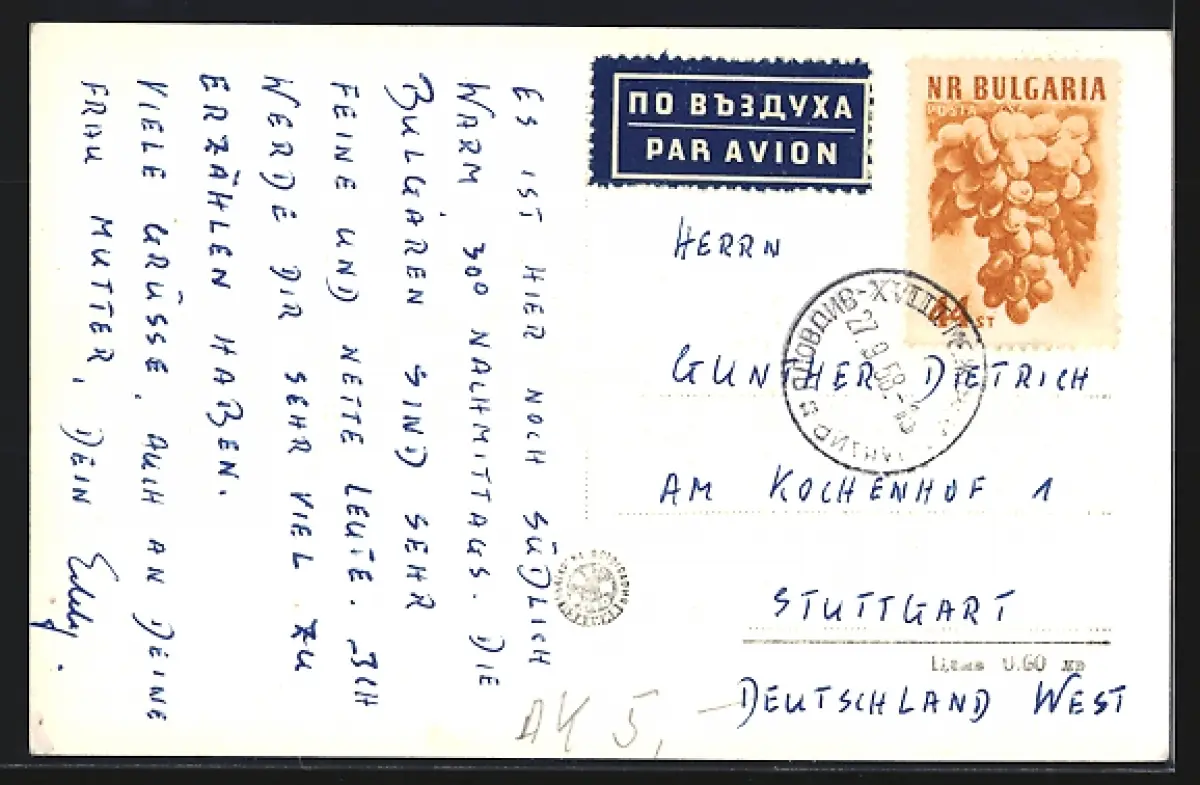 ES IST HIER NOCH SÜDLICH
WARM, 30° NACHMITTAGS. DIE
BULGAREN SIND SEHR
FEINE UND NETTE LEUTE. ICH
WERDE DIR SEHR VIEL ZU
ERZÄHLEN HABEN.
VIELE GRÜSSE, AUCH AN DEINE
FRAU MUTTER, DEIN
ПО ВЪЗДУХА
PAR AVION
NR BULGARIA
POSTA
ПЛОВДИВ
27.9.58
HERRN
GUNTHER DIETRICH
AM KOCHENHOF 1
STUTTGART
0.60
DEUTSCHLAND WEST
AK 5,